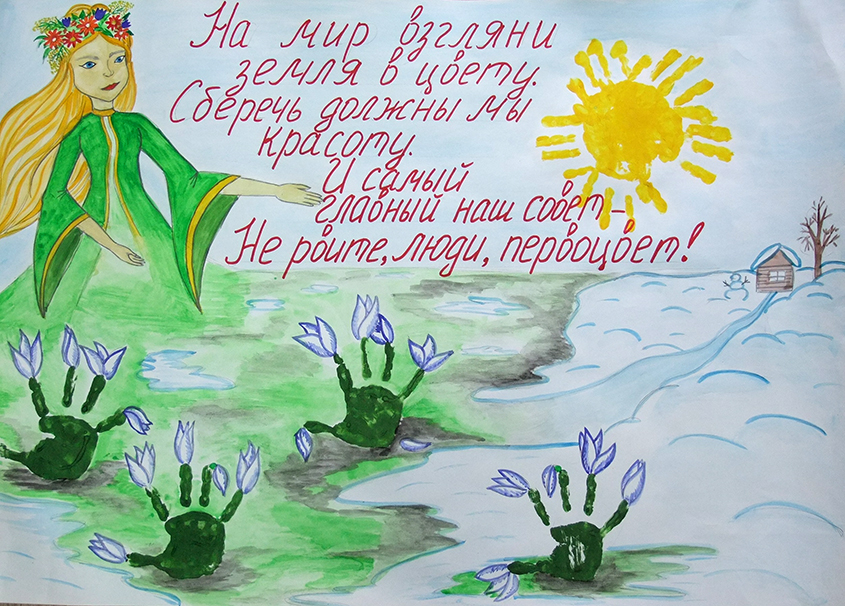 На мир взгляни
земля в цвету.
Сберечь должны мы
красоту.
И самый
главный наш совет -
Не рвите, люди, первоцвет!